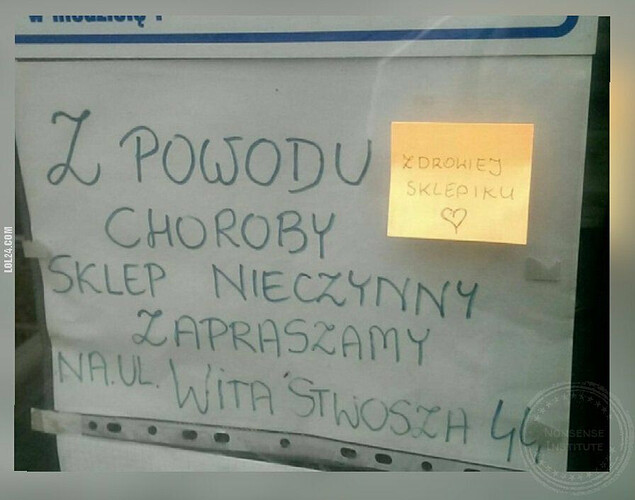 Z POWODU
CHOROBY
SKLEP NIECZYNNY
ZAPRASZAMY
NA.UL. WITA STWOSZA 44
ZDROWIEJ
SKLEPIKU
♡
LOL24.COM
NONSENSE
INSTITUTE